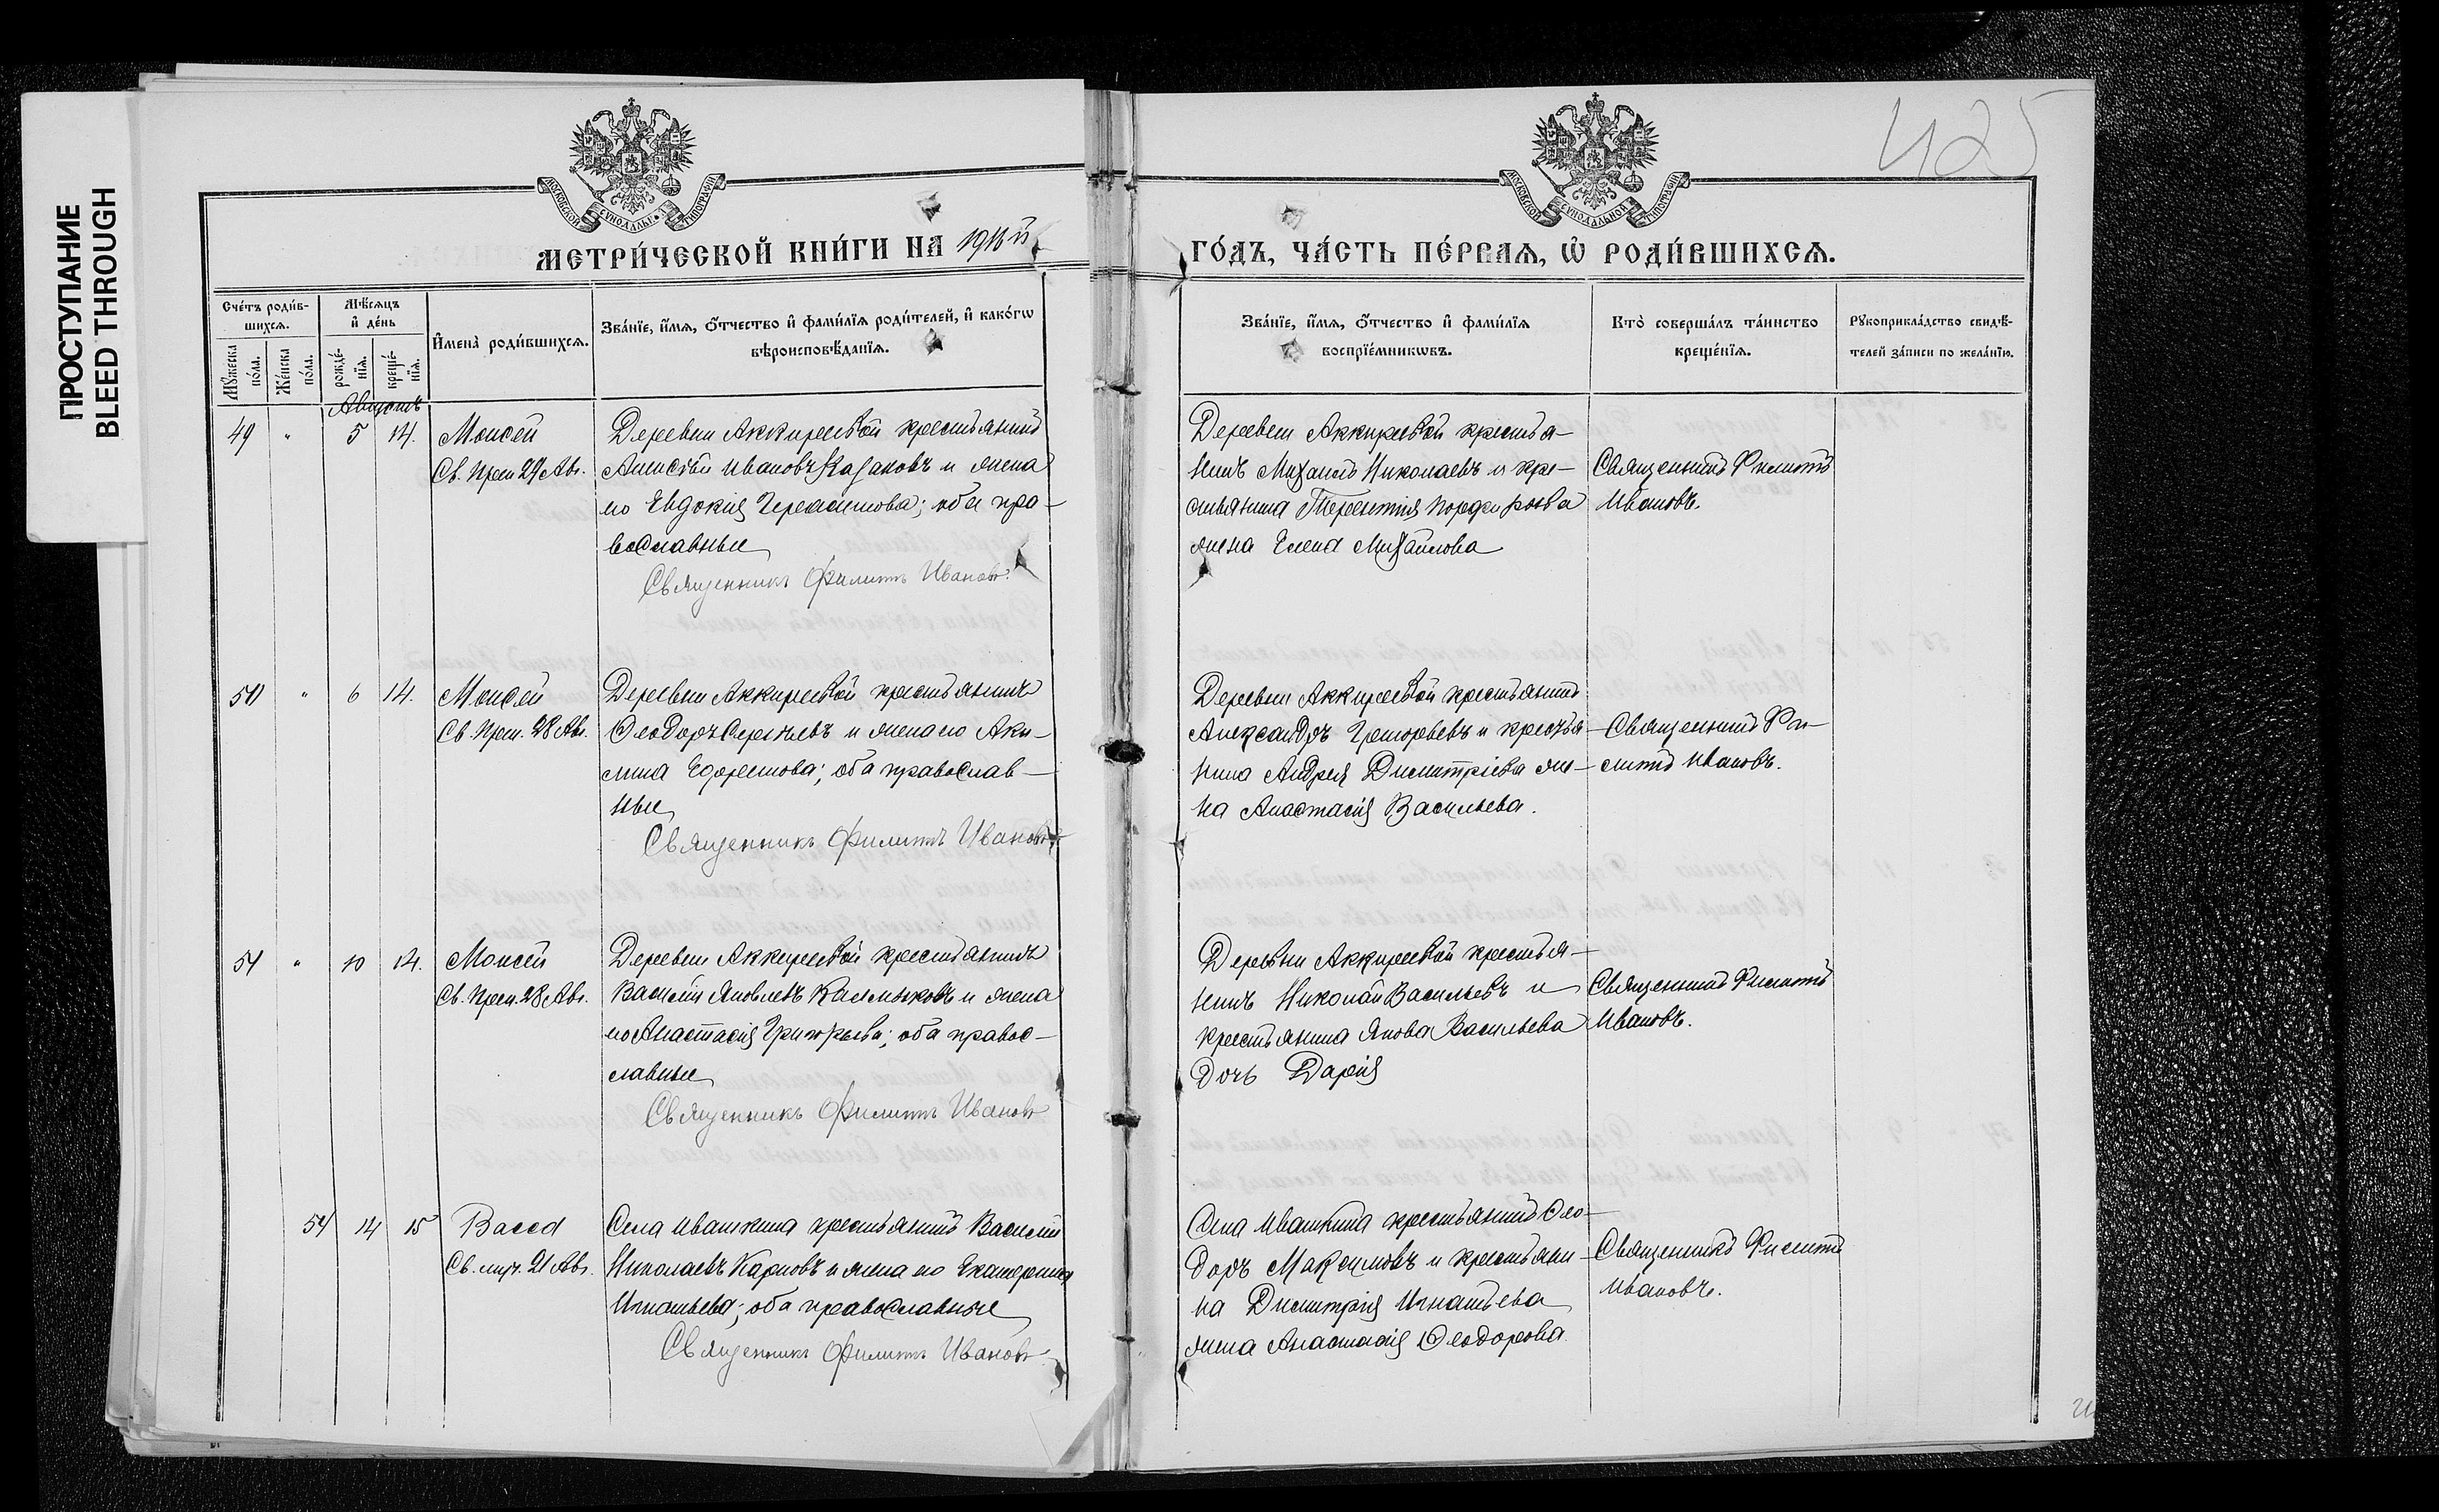 ПРОСТУПАНИЕ
BLEED THROUGH
425
МОСКОВСКОЙ СѴНОДАЛЬНОЙ ТИПОГРАФІИ
МОСКОВСКОЙ СѴНОДАЛЬНОЙ ТИПОГРАФІИ
МЕТРИ́ЧЕСКОЙ КНИ́ГИ НА 1916 й
ГО́ДЪ, ЧА́СТЬ ПЕ́РВАЯ, Ѡ РОДИ́ВШИХСЯ.
Сче́тъ роди́в-
шихся.
Мꙋ́жеска
по́ла.
Же́нска
по́ла.
Мѣ́сяцъ
и де́нь
рожде́-
нїя.
креще́-
нїя.
Имена̀ роди́вшихся.
Зва́нїе, и́мя, ѻ́тчество и фами́лїя роди́телей, и како́гѡ
вѣроисповѣ́данїя.
Зва́нїе, и́мя, ѻ́тчество и фами́лїя
воспрїе́мникѡвъ.
Кто̀ соверша́лъ та́инство
креще́нїя.
Рꙋкоприкла́дство свидѣ́-
телей за́писи по жела́нїю.
Августъ
49 " 5 14. Моисей
Св. Прем. 28 Авг.
Деревни Аккиреевой крестьянинъ
Алексѣй Ивановъ Казаковъ и жена
его Евдокія Герасимова; оба пра-
вославные
Священникъ Филиппъ Ивановъ.
Деревни Аккиреевой крестья-
нинъ Михаилъ Николаевъ и кре-
стьянина Терентія Порфирьева
жена Елена Михайлова
Священникъ Филиппъ
Ивановъ.
50 " 6 14. Моисей
Св. Прем. 28 Авг.
Деревни Аккиреевой крестьянинъ
Ѳеодоръ Сергѣевъ и жена его Аки-
лина Ефремова; оба православ-
ные
Священникъ Филиппъ Ивановъ
Деревни Аккиреевой крестьянинъ
Александръ Григорьевъ и крестья-
нина Андрея Димитріева же-
на Анастасія Васильева.
Священникъ Фи-
липпъ Ивановъ.
51 " 10 14. Моисей
Св. Прем. 28 Авг.
Деревни Аккиреевой крестьянинъ
Василій Яковлевъ Калмыковъ и жена
его Анастасія Григорьева; оба правос-
лавные
Священникъ Филиппъ Ивановъ
Деревни Аккиреевой крестья-
нинъ Николай Васильевъ и
крестьянина Якова Васильева
дочь Дарія
Священникъ Филиппъ
Ивановъ.
54 14 15 Васса
Св. муч. 21 Авг.
Села Ивашкина крестьянинъ Василій
Николаевъ Карповъ и жена его Екатерина
Игнатьева; оба православные
Священникъ Филиппъ Ивановъ
Села Ивашкина крестьянинъ Ѳео-
доръ Максимовъ и крестьяни-
на Димитрія Игнатьева
жена Анастасія Ѳеодорова
Священникъ Филиппъ
Ивановъ.